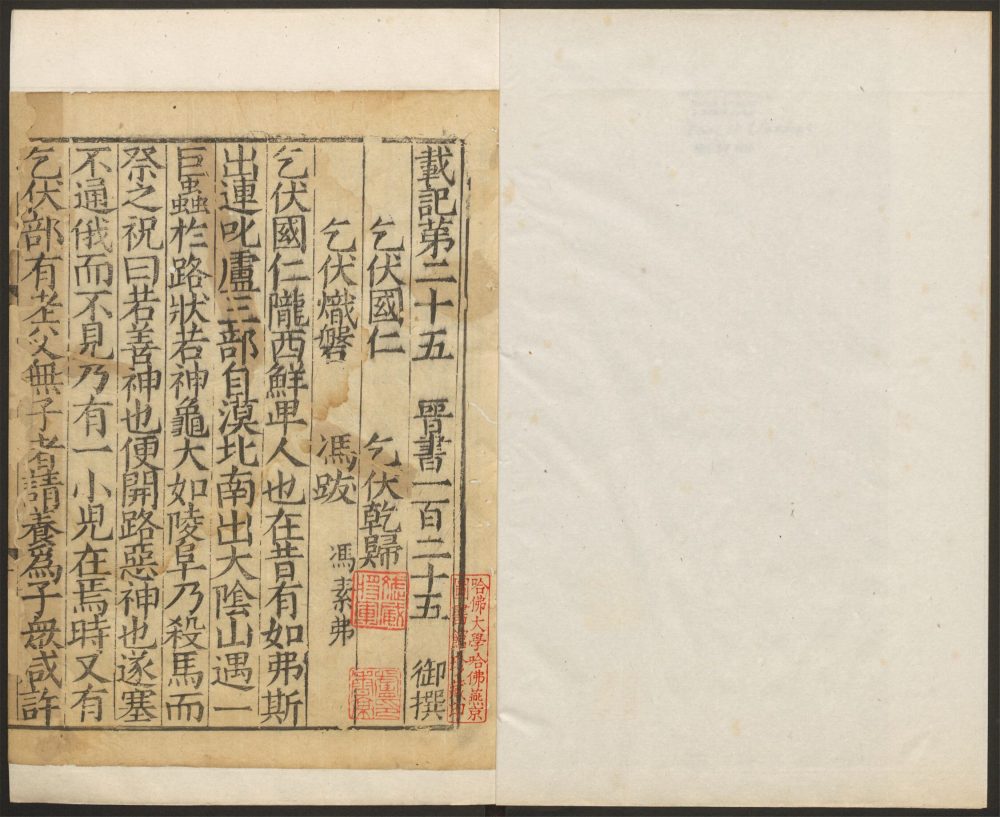 載記第二十五 晉書一百二十五 御撰
乞伏國仁 乞伏乾歸
乞伏熾磐 馮跋 馮素弗
乞伏國仁隴西鮮卑人也在昔有如弗斯
出連叱盧三部自漠北南出大陰山遇一
巨蟲於路狀若神龜大如陵阜乃殺馬而
祭之祝曰若善神也便開路惡神也遂塞
不通俄而不見乃有一小兒在焉時又有
乞伏部有老父無子者請養爲子衆咸許
哈佛大學哈佛燕京
圖書館珍藏印